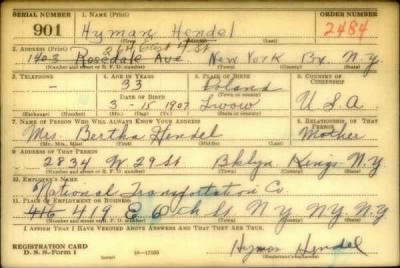 SERIAL NUMBER 1. NAME (Print) ORDER NUMBER
901 Hyman Hendel 2484
(First) (Middle) (Last)
2. ADDRESS (Print) 264 East 4 St
1403 Rosedale Ave. New York Bx. N.Y.
(Number and street or R. F. D. number) (Town) (County) (State)
3. TELEPHONE 4. AGE IN YEARS 5. PLACE OF BIRTH 6. COUNTRY OF CITIZENSHIP
33 Poland
DATE OF BIRTH (Town or county)
3-15-1907 Lwow U S A
(Exchange) (No.) (Mo.) (Day) (Yr.) (State or country)
7. NAME OF PERSON WHO WILL ALWAYS KNOW YOUR ADDRESS 8. RELATIONSHIP OF THAT PERSON
Mrs. Bertha Hendel Mother
(Mr., Mrs., Miss) (First) (Middle) (Last)
9. ADDRESS OF THAT PERSON
2834 W 29 St. Bklyn Kings N.Y.
(Number and street or R. F. D. number) (Town) (County) (State)
10. EMPLOYER'S NAME
National Transportation Co.
11. PLACE OF EMPLOYMENT OR BUSINESS
416 419 E. St NY NY N.Y.
(Number and street or R. F. D. number) (Town) (County) (State)
I AFFIRM THAT I HAVE VERIFIED ABOVE ANSWERS AND THAT THEY ARE TRUE.
REGISTRATION CARD
D. S. S. Form 1 16-17105 Hyman Hendel